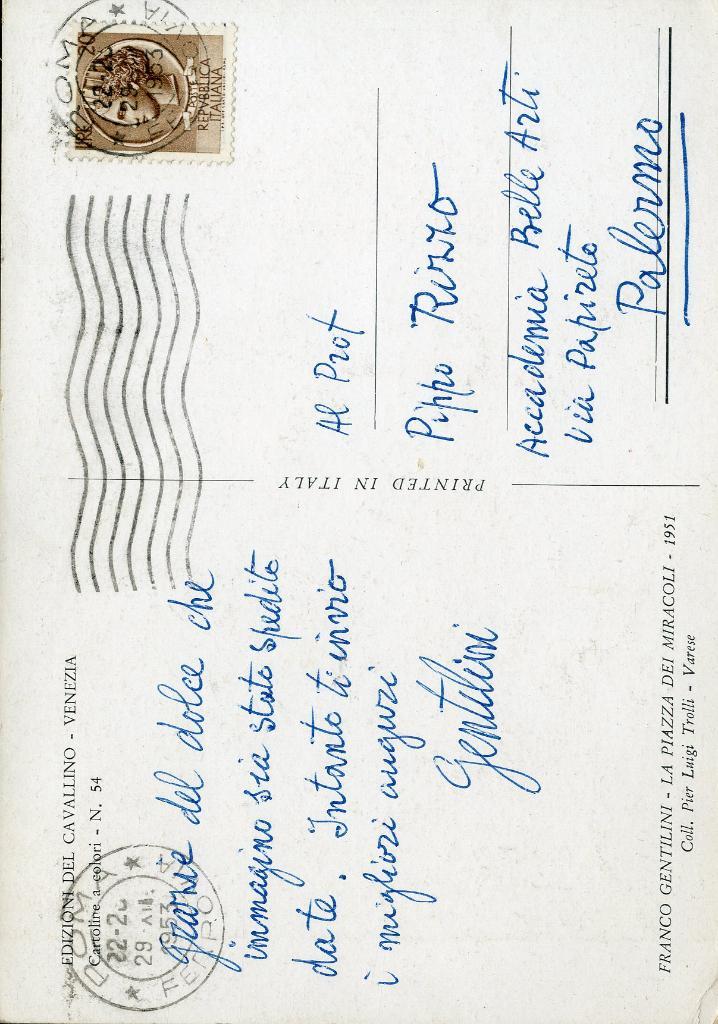 EDIZIONI DEL CAVALLINO - VENEZIA
Cartoline a colori - N. 54
ROMA
22-23
29 XII.
1953
FERROVIA
grazie del dolce che
immagino sia stato spedito
da te. Intanto ti invio
i migliori auguri
Gentilini
FRANCO GENTILINI - LA PIAZZA DEI MIRACOLI - 1951
Coll. Pier Luigi Trolli - Varese
PRINTED IN ITALY
ROMA
22-23
29 XII.
1953
FERROVIA
LIRE 20
POSTE
REPVBBLICA
ITALIANA
Al Prof
Pippo Rizzo
Accademia Belle Arti
Via Papireto
Palermo